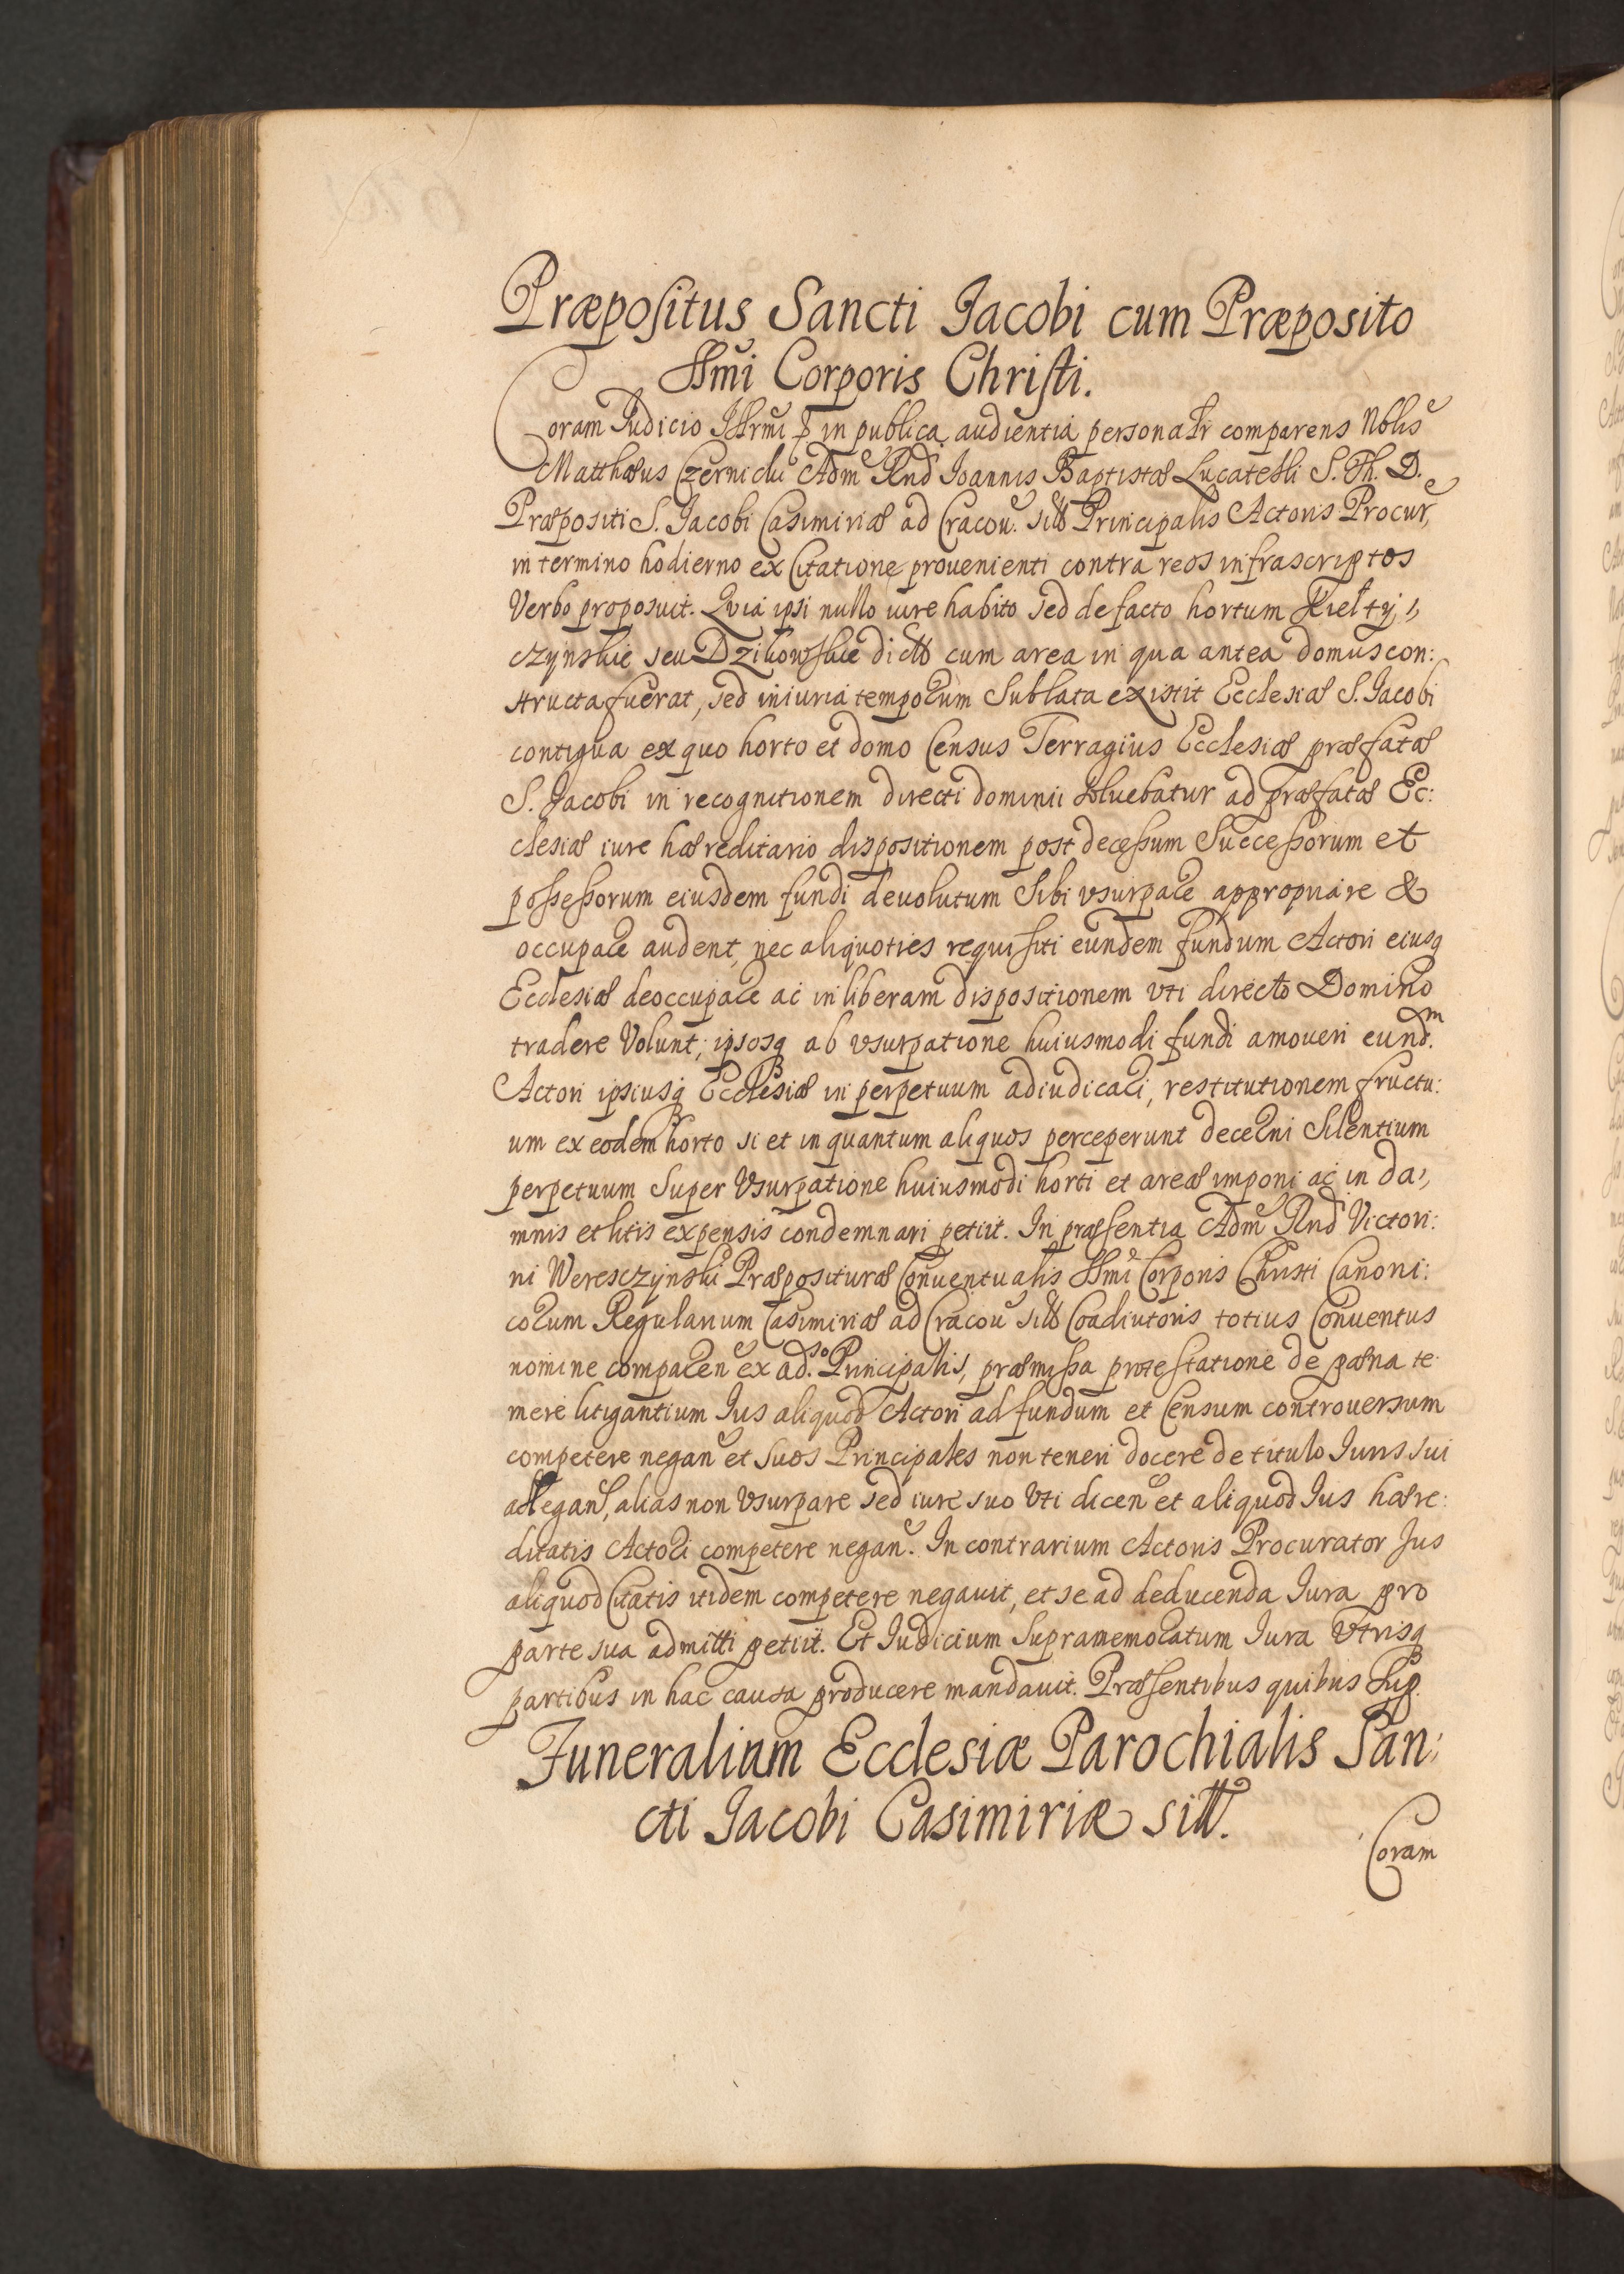 Præpositus Sancti Jacobi cum Præposito
SSmi Corporis Christi.
Coram Judicio in publica audientia personalr comparens Nblis
Matthæus Adm Rnd Ioannis Baptistæ Lucatelli S. Th. D.
Præpositi S. Jacobi Casimiriæ ad Cracou. sitt Principalis Actoris Procur,
in termino hodierno ex Citatione prouenienti contra reos infrascriptos
Verbo proposuit. Quia ipsi nullo iure habito sed de facto hortum
czynskie seu Dzikowskie dictt cum area in qua antea domus con:
structa fuerat, sed iniuria temporum Sublata existit Ecclesiæ S. Jacobi
contigua ex quo horto et domo Census Terragius Ecclesiæ præfatæ
S. Jacobi in recognitionem directi dominii soluebatur ad præfatæ Ec:
clesiæ iure hæreditario dispositionem post decessum Successorum et
possessorum eiusdem fundi deuolutum Sibi vsurpare appropriare &
occupare audent, nec aliquoties requisiti eundem fundum Actori eiusq
Ecclesiæ deoccupare ac in liberam dispositionem vti directo Domino
tradere Volunt; ipsosq ab vsurpatione huiusmodi fundi amoueri eund.m
Actori ipsiusq Ecclesiæ in perpetuum adiudicari, restitutionem fructu:
um ex eodem horto si et in quantum aliquos perceperunt decerni Silentium
perpetuum Super Vsurpatione huiusmodi horti et areæ imponi ac in da,
mnis et litis expensis condemnari petiit. In præsentia Adm Rnd Victori:
ni Weresczynski Præposituræ Conuentualis SSmi Corporis Christi Canoni:
corum Regularium Casimiriæ ad Cracou sitt Coadiutoris totius Conuentus
nomine comparen ex ad.so Principalis, præmissa protestatione de pæna te
mere litigantium Ius aliquod Actori ad fundum et Censum controuersum
competere negan et Suos Principales non teneri docere de titulo Iuris sui
allegan, alias non Vsurpare sed iure suo Vti dicen et aliquod Ius hære:
ditatis Actori competere negan. In contrarium Actoris Procurator Jus
aliquod Citatis itidem competere negauit, et se ad deducenda Iura pro
parte sua admitti petiit. Et Iudicium Supramemoratum Iura Vtrisq
partibus in hac causa producere mandauit. Præsentibus quibus Sup.
Funeralium Ecclesiæ Parochialis San:
cti Jacobi Casimiriæ sitt.
Coram